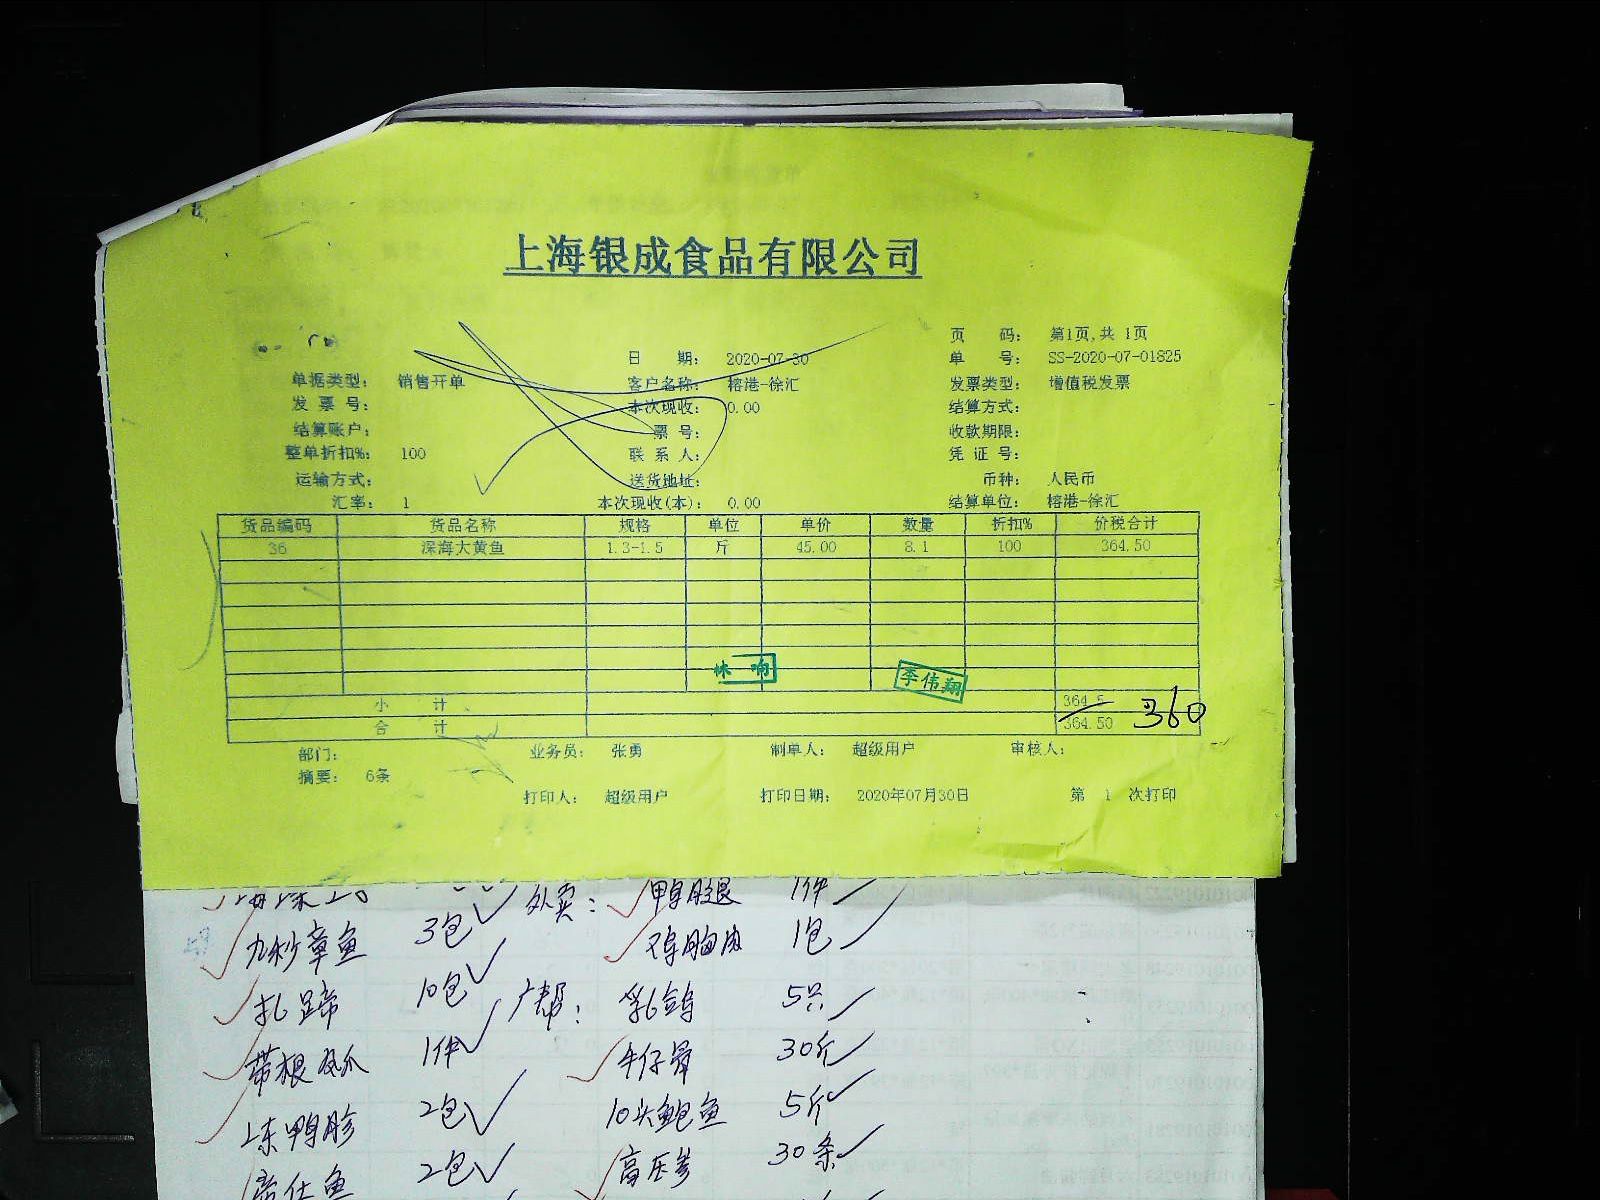 上海银成食品有限公司
页 码: 第1页,共 1页
日 期: 2020-07-30 单 号: SS-2020-07-01825
单据类型: 销售开单 客户名称: 榕港-徐汇 发票类型: 增值税发票
发 票 号: 本次现收: 0.00 结算方式:
结算账户: 票 号: 收款期限:
整单折扣%: 100 联 系 人: 凭 证 号:
运输方式: 送货地址: 币种: 人民币
汇率: 1 本次现收(本): 0.00 结算单位: 榕港-徐汇
货品编码 货品名称 规格 单位 单价 数量 折扣% 价税合计
36 深海大黄鱼 1.3-1.5 斤 45.00 8.1 100 364.50
林 响 李伟翔
小 计 364.5
合 计 364.50 360
部门: 业务员: 张勇 制单人: 超级用户 审核人:
摘要: 6条
打印人: 超级用户 打印日期: 2020年07月30日 第 1 次打印
外卖: 鸭腿 1件
章鱼 3包 鸡胸肉 1包
扎蹄 10包 广帮: 乳鸽 5只
带根凤爪 1件 牛仔骨 30斤
冻鸭胗 2包 10头鲍鱼 5斤
鱼 2包 高压参 30条